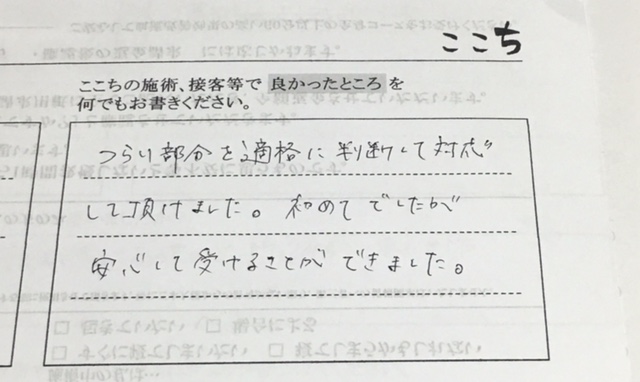 ここち
ここちの施術、接客等で 良かったところ を
何でもお書きください。
つらい部分を適格に判断して対応
して頂けました。初めてでしたが
安心して受けることができました。